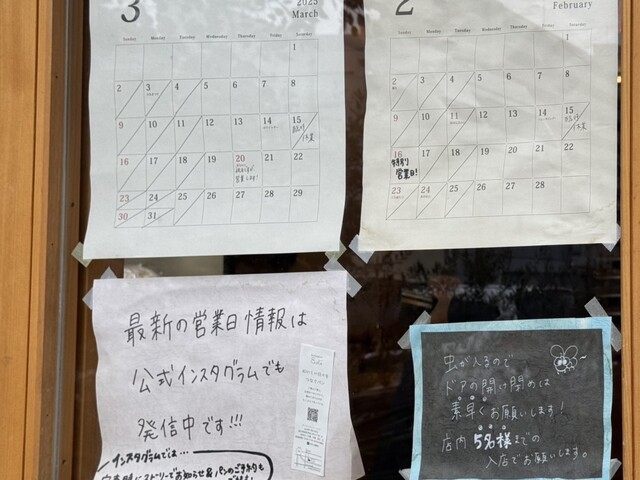 3
2025
March
Sunday Monday Tuesday Wednesday Thursday Friday Saturday
1
2 3 4 5 6 7 8
9 10 11 12 13 14 15
臨時
休業
16 17 18 19 20 21 22
営業します!
23 24 25 26 27 28 29
30 31
2
February
Sunday Monday Tuesday Wednesday Thursday Friday Saturday
1
2 3 4 5 6 7 8
9 10 11 12 13 14 15
臨時
休業
16 17 18 19 20 21 22
特別
営業日!
23 24 25 26 27 28
最新の営業日情報は
公式インスタグラムでも
発信中です!!!
インスタグラムでは…
虫が入るので
ドアの開け閉めは
素早くお願いします!
店内5名様までの
入店でお願いします。